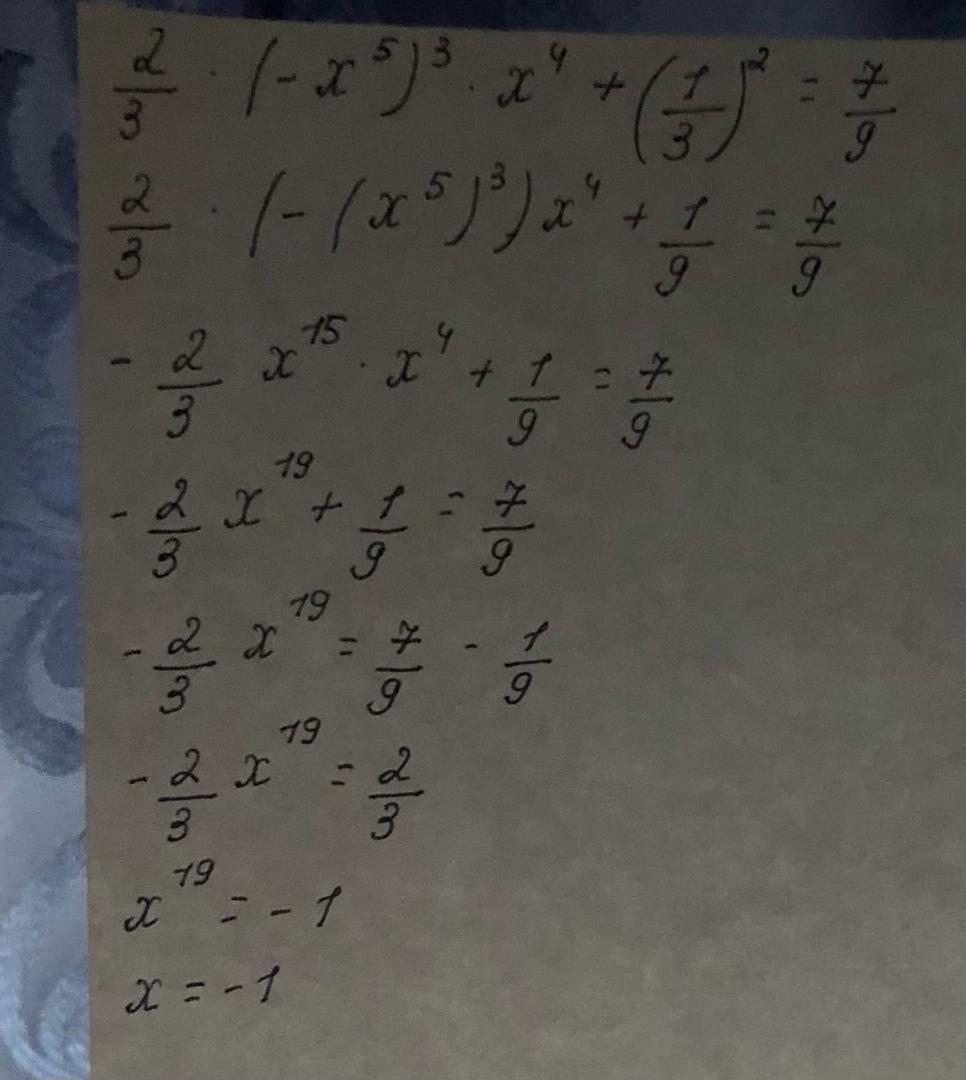 2/3 · (-x⁵)³ · x⁴ + (1/3)² = 7/9
2/3 · (-(x⁵)³)x⁴ + 1/9 = 7/9
- 2/3 x¹⁵ · x⁴ + 1/9 = 7/9
- 2/3 x¹⁹ + 1/9 = 7/9
- 2/3 x¹⁹ = 7/9 - 1/9
- 2/3 x¹⁹ = 2/3
x¹⁹ = - 1
x = - 1